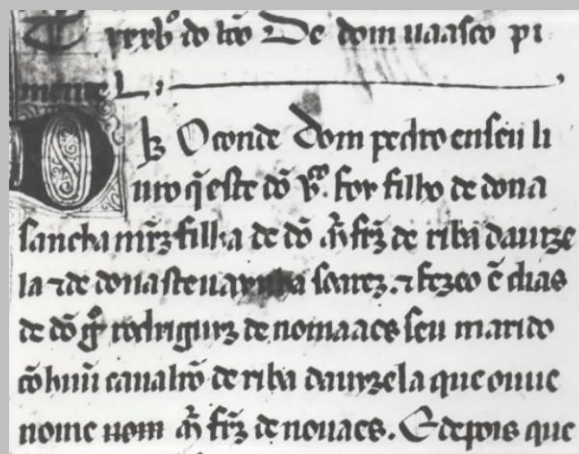 xxxbº do lcō De dom uaasco pi
mentel.
Diz O conde dom pedro en seu li
uro q̄ este dō vᵃᵒ. foy filho de dona
sancha mr̄z filha de dō m̄ fr̄z de riba dauize
la ⁊ de dona steuaynha soarez. ⁊ fezeo ē dias
de dō gº rodriguiz de nomaaes seu marido
cō huū caualrō de riba dauizela que ouue
nome nom m̄ fr̄z de nouaes. E depois que